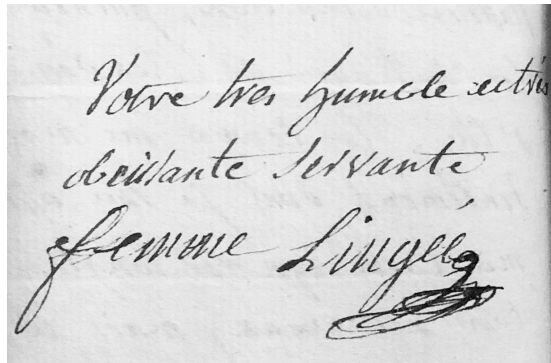 Votre tres humble et tres
obeissante servante
femme Lingée